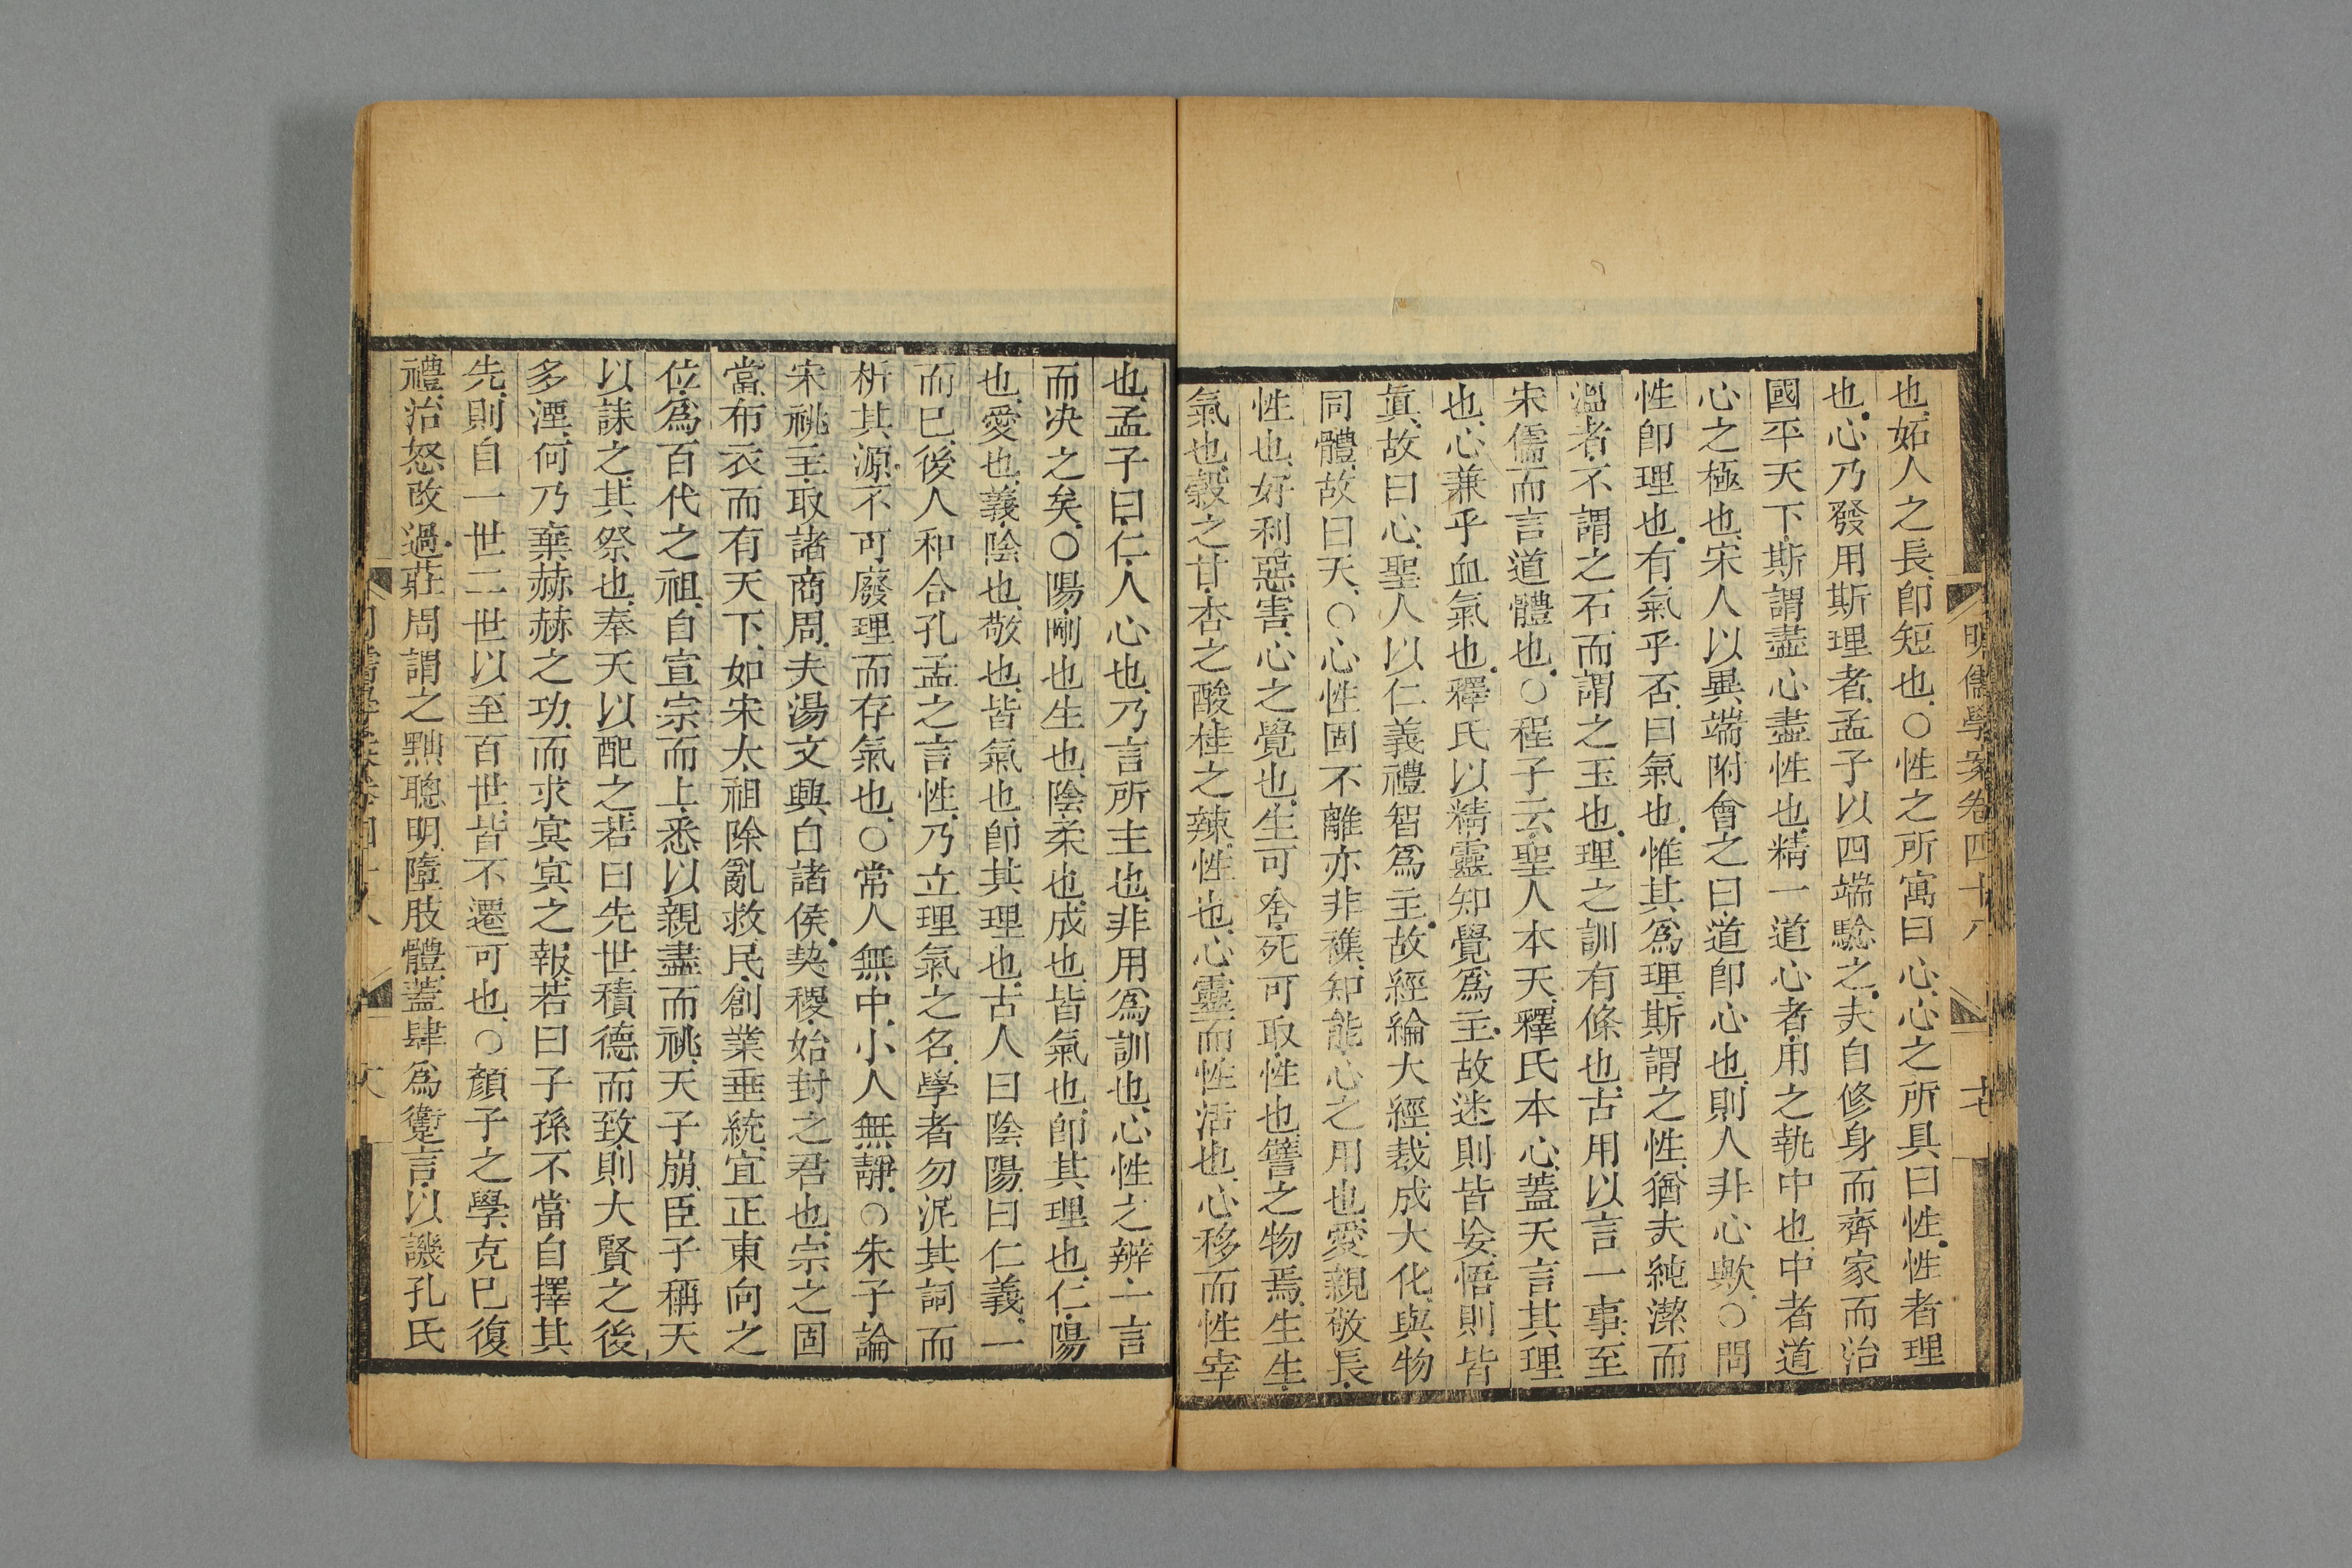 明儒學案卷四十八
十七
也、妬人之長、卽短也、○性之所寓曰心、心之所具曰性、性者理
也、心乃發用斯理者、孟子以四端驗之、夫自修身而齊家而治
國平天下、斯謂盡心盡性也、精一道心者、用之執中也、中者道
心之極也、宋人以異端附會之曰、道卽心也、則人非心歟、○問
性卽理也、有氣乎否、曰氣也、惟其爲理、斯謂之性、猶夫純潔而
溫者、不謂之石而謂之玉也、理之訓有條也、古用以言一事、至
宋儒而言道體也、○程子云、聖人本天、釋氏本心、蓋天言其理
也、心兼乎血氣也、釋氏以精靈知覺爲主、故迷則皆妄、悟則皆
眞、故曰心、聖人以仁義禮智爲主、故經綸大經、裁成大化、與物
同體、故曰天、○心性固不離、亦非襍、知能、心之用也、愛親敬長、
性也、好利惡害、心之覺也、生可舍、死可取、性也、譬之物焉、生生、
氣也、穀之甘、杏之酸、桂之辣、性也、心靈而性活也、心移而性宰
也、孟子曰、仁、人心也、乃言所主也、非用爲訓也、心性之辨、一言
而决之矣、○陽、剛也、生也、陰、柔也、成也、皆氣也、卽其理也、仁、陽
也、愛也、義、陰也、敬也、皆氣也、卽其理也、古人曰陰陽、曰仁義、一
而已、後人和合孔孟之言性、乃立理氣之名、學者勿泥其詞而
析其源、不可廢理而存氣也、○常人無中、小人無靜、○朱子論
宋祧主、取諸商周、夫湯文興自諸侯、契稷、始封之君也、宗之固
當、布衣而有天下、如宋太祖除亂救民、創業垂統、宜正東向之
位、爲百代之祖、自宣宗而上、悉以親盡而祧、天子崩、臣子稱天
以誄之、其祭也、奉天以配之、若曰先世積德而致、則大賢之後
多湮、何乃棄赫赫之功、而求冥冥之報、若曰子孫不當自擇其
先、則自一世二世以至百世、皆不遷可也、○顏子之學、克已復
禮、治怒改過、莊周謂之黜聰明、隳肢體、蓋肆爲躗言、以譏孔氏